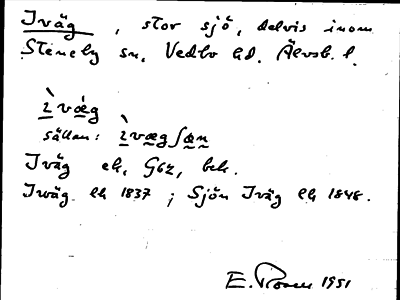 Iväg, stor sjö, delvis inom
Steneby sn, Vedbo hd. Älvsb. l.
ì̱vǽg
sällan: ì̱væ̰gʃæ̰ṵ
Iväg ek, G62, bek.
Iwäg ek 1837; Sjön Iväg ek 1848.
E. Rosen 1951